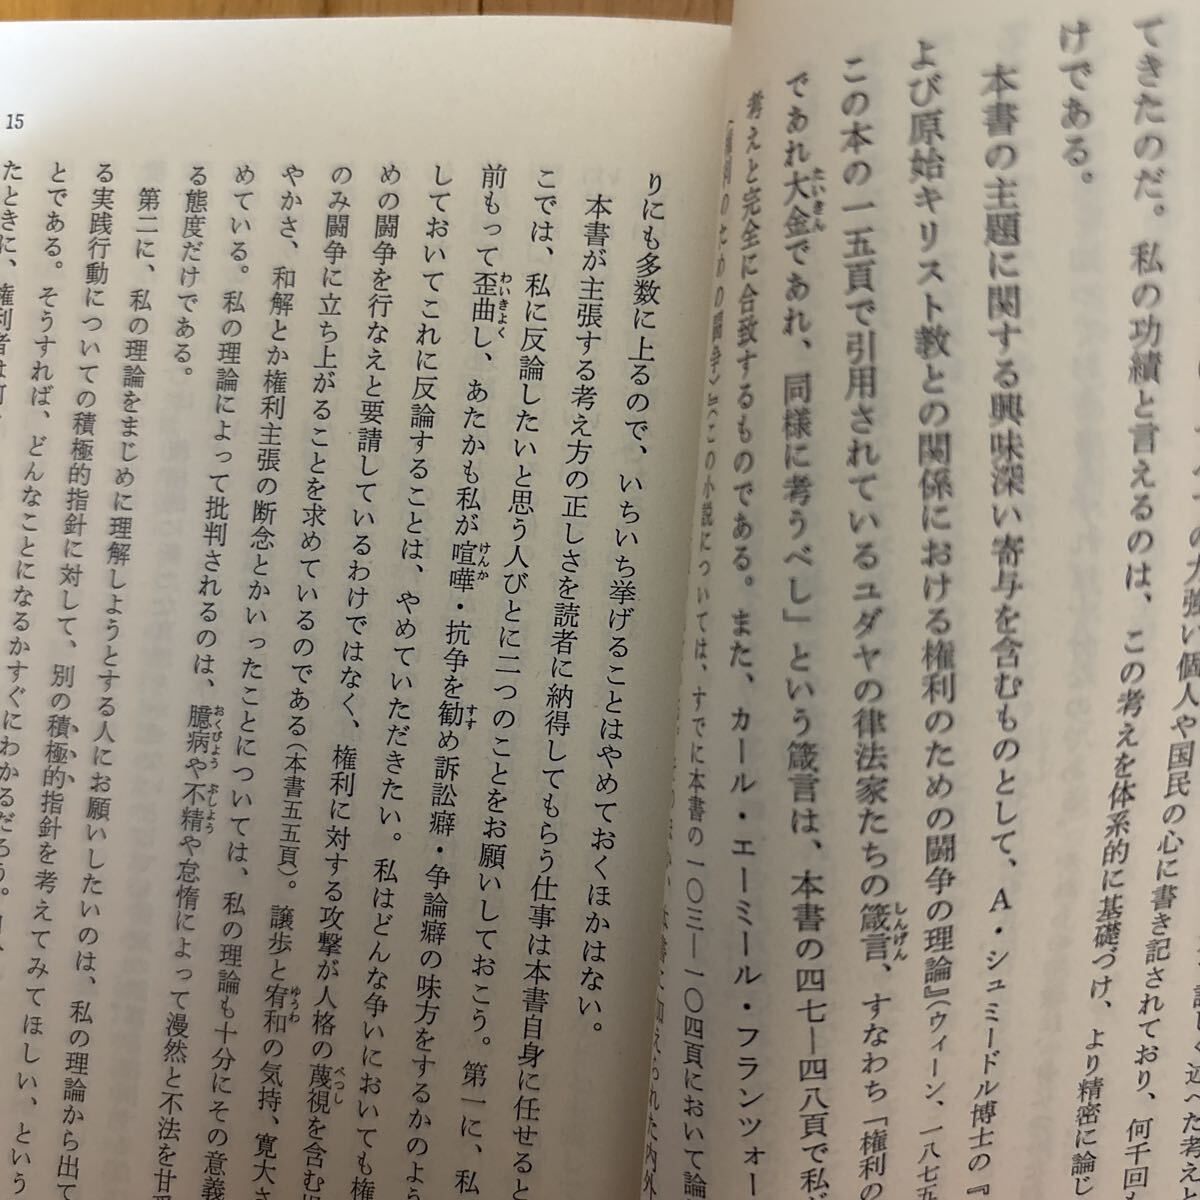 の力強い個人や国民の心に書き記されており、何千回
てきたのだ。私の功績と言えるのは、この考えを体系的に基礎づけ、より精密に論じ
けである。
本書の主題に関する興味深い寄与を含むものとして、A・シュミードル博士の『
よび原始キリスト教との関係における権利のための闘争の理論』（ウィーン、一八七五
この本の一五頁で引用されているユダヤの律法家たちの箴言、すなわち「権利の
しんげん
であれ大金であれ、同様に考うべし」という箴言は、本書の四七―四八頁で私が
たいきん
考えと完全に合致するものである。また、カール・エーミール・フランツォー
のための闘争〉』（この小説については、すでに本書の一〇三―一〇四頁において論
15
りにも多数に上るので、いちいち挙げることはやめておくほかはない。
本書が主張する考え方の正しさを読者に納得してもらう仕事は本書自身に任せると
こでは、私に反論したいと思う人びとに二つのことをお願いしておこう。第一に、私
前もって歪曲し、あたかも私が喧嘩・抗争を勧め訴訟癖・争論癖の味方をするかのよう
わいきょく
けんか
すす
しておいてこれに反論することは、やめていただきたい。私はどんな争いにおいても権
めの闘争を行なえと要請しているわけではなく、権利に対する攻撃が人格の蔑視を含む
べっし
のみ闘争に立ち上がることを求めているのである（本書五五頁）。譲歩と宥和の気持、寛大さ
ゆうわ
やかさ、和解とか権利主張の断念とかいったことについては、私の理論も十分にその意義
めている。私の理論によって批判されるのは、臆病や不精や怠惰によって漫然と不法を甘受
おくびょう
ぶしょう
る態度だけである。
第二に、私の理論をまじめに理解しようとする人にお願いしたいのは、私の理論から出て
る実践行動についての積極的指針に対して、別の積極的指針を考えてみてほしい、という
とである。そうすれば、どんなことになるかすぐにわかるだろう。
たときに、権利者は何